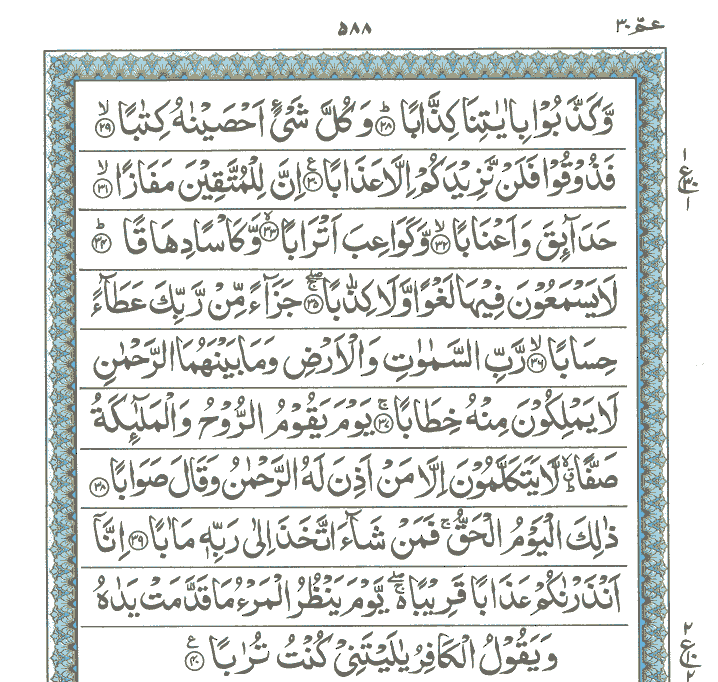 عمّ ٣٠
۵۸۸
وَّكَذَّبُوْا بِاٰيٰتِنَا كِذَّابًا ﴿۲۸﴾ؕ وَكُلَّ شَیْءٍ اَحْصَيْنٰهُ كِتٰبًا ﴿۲۹﴾ۙ
فَذُوْقُوْا فَلَنْ نَّزِيْدَكُمْ اِلَّا عَذَابًا ﴿۳۰﴾ع اِنَّ لِلْمُتَّقِيْنَ مَفَازًا ﴿۳۱﴾ۙ
١
ع
٣٠
١
حَدَآئِقَ وَاَعْنَابًا ﴿۳۲﴾ۙ وَّكَوَاعِبَ اَتْرَابًا ﴿۳۳﴾ۙ وَّكَاْسًا دِهَاقًا ﴿۳۴﴾ؕ
لَا يَسْمَعُوْنَ فِيْهَا لَغْوًا وَّلَا كِذّٰبًا ﴿۳۵﴾ۚ جَزَآءً مِّنْ رَّبِّكَ عَطَآءً
حِسَابًا ﴿۳۶﴾ۙ رَّبِّ السَّمٰوٰتِ وَالْاَرْضِ وَمَا بَيْنَهُمَا الرَّحْمٰنِ
لَا يَمْلِكُوْنَ مِنْهُ خِطَابًا ﴿۳۷﴾ۚ يَوْمَ يَقُوْمُ الرُّوْحُ وَالْمَلٰٓئِكَةُ
صَفًّا ۙؕ لَّا يَتَكَلَّمُوْنَ اِلَّا مَنْ اَذِنَ لَهُ الرَّحْمٰنُ وَقَالَ صَوَابًا ﴿۳۸﴾
ذٰلِكَ الْيَوْمُ الْحَقُّ ۚ فَمَنْ شَآءَ اتَّخَذَ اِلٰى رَبِّهٖ مَاٰبًا ﴿۳۹﴾ اِنَّآ
اَنْذَرْنٰكُمْ عَذَابًا قَرِيْبًا ۚۖ يَّوْمَ يَنْظُرُ الْمَرْءُ مَا قَدَّمَتْ يَدٰهُ
وَيَقُوْلُ الْكَافِرُ يٰلَيْتَنِیْ كُنْتُ تُرٰبًا ﴿۴۰﴾ع
٢
ع
١٠
٢